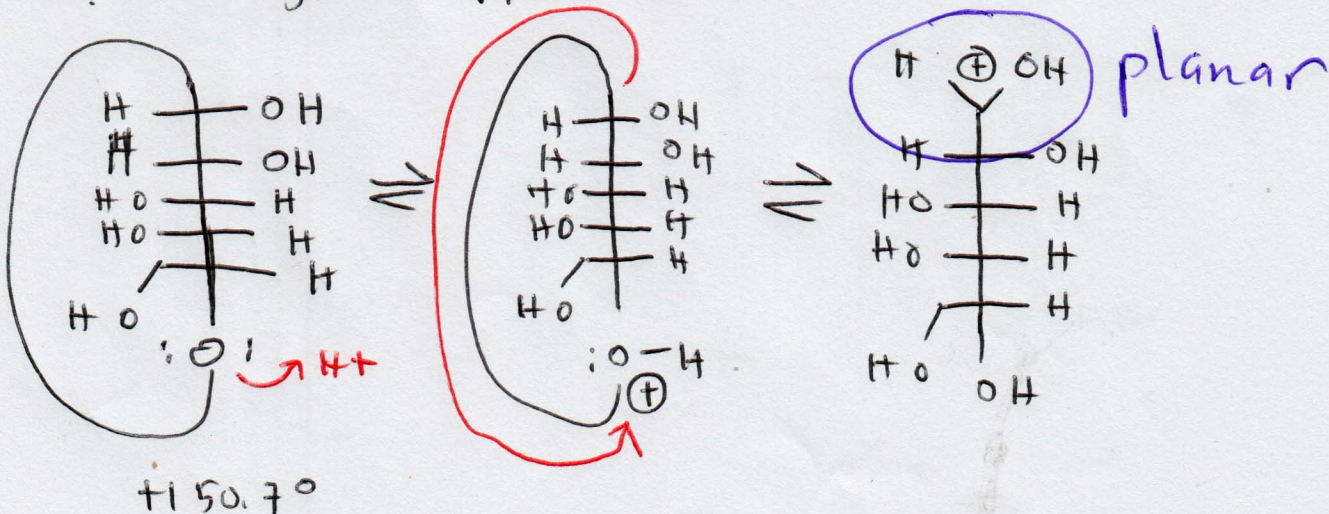 H OH
H OH
HO H
HO H
H
HO
:O:
H+
+150.7°
H OH
H OH
HO H
HO H
H
HO
:O-H
+
H + OH
H OH
HO H
HO H
H
HO
OH
planar